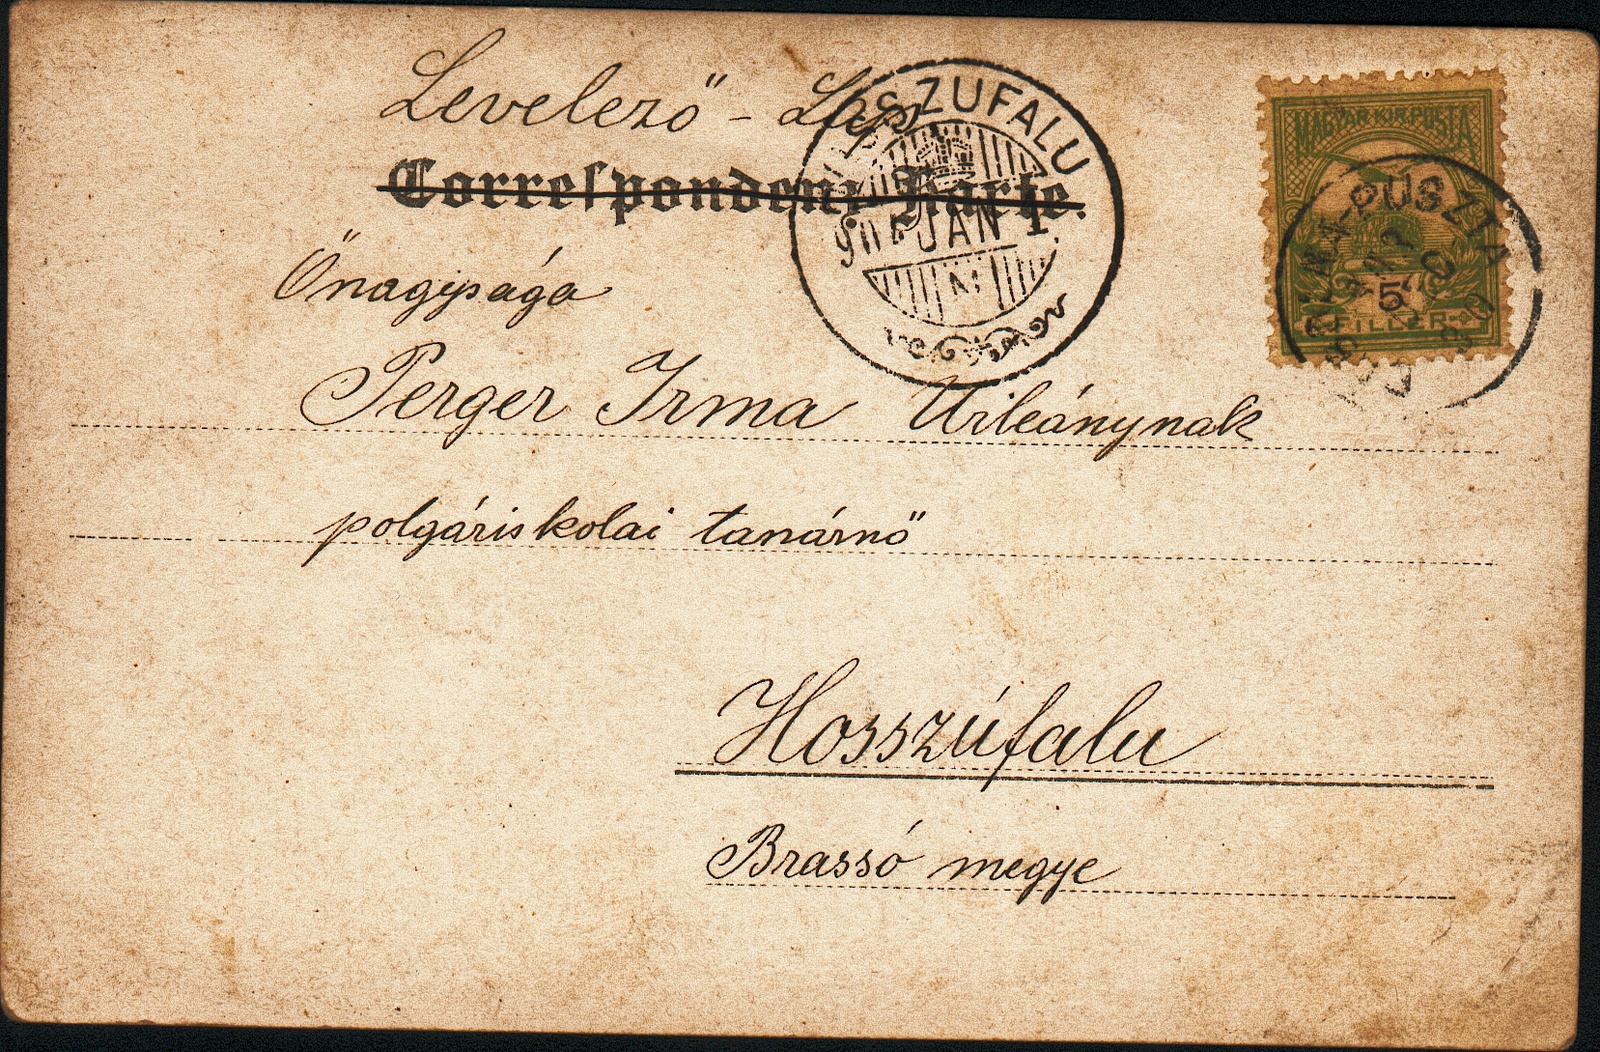 Levelező - Lap
Correspondenz-Karte.
HOSSZUFALU
JAN
MAGYAR KIR. POSTA
PUSZTA
5
FILLÉR
Őnagysága
Perger Irma Urileánynak
polgáriskolai tanárnő
Hosszúfalu
Brassó megye